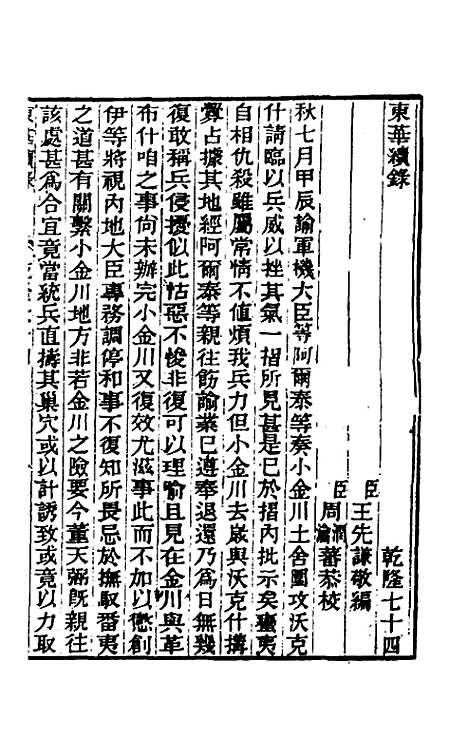 東華續錄
乾隆七十四
臣王先謙敬編
臣周潤蕃瀹蕃恭校
秋七月甲辰諭軍機大臣等阿爾泰等奏小金川土舍圍攻沃克
什請臨以兵威以挫其氣一摺所見甚是已於摺內批示矣蠻夷
自相仇殺雖屬常情不值煩我兵力但小金川去歲與沃克什搆
釁占據其地經阿爾泰等親往飭諭業已遵奉退還乃為日無幾
復敢稱兵侵擾似此怙惡不悛非復可以理喻且見在金川與革
布什咱之事尙未辦完小金川又復效尤滋事此而不加以懲創
伊等將視內地大臣專務調停和事不復知所畏忌於撫馭番夷
之道甚有關繫小金川地方非若金川之險要今董天弼旣親往
該處甚為合宜竟當統兵直擣其巢穴或以計誘致或竟以力取
東華續錄